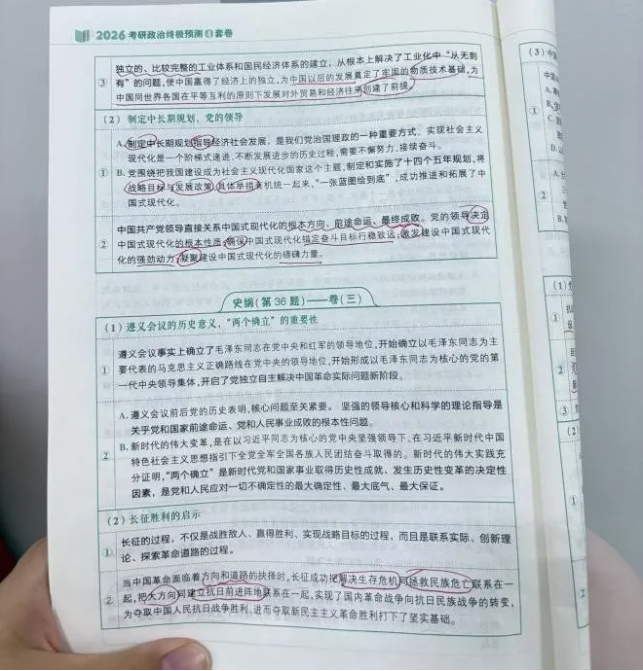 2026考研政治终极预测4套卷
独立的、比较完整的工业体系和国民经济体系的建立，从根本上解决了工业化中“从无到
③ 有”的问题，使中国赢得了经济上的独立，为中国以后的发展奠定了牢固的物质技术基础，为
中国同世界各国在平等互利的原则下发展对外贸易和经济往来创建了前提。
（2）制定中长期规划，党的领导
A. 制定中长期规划指导经济社会发展，是我们党治国理政的一种重要方式。实现社会主义
现代化是一个阶梯式递进、不断发展进步的历史过程，需要不懈努力、接续奋斗。
① B. 党围绕把我国建设成为社会主义现代化国家这个主题，制定和实施了十四个五年规划，将
战略目标与发展政策、具体举措有机统一起来，“一张蓝图绘到底”，成功推进和拓展了中
国式现代化。
中国共产党领导直接关系中国式现代化的根本方向、前途命运、最终成败。党的领导决定
② 中国式现代化的根本性质；确保中国式现代化锚定奋斗目标行稳致远；激发建设中国式现代
化的强劲动力；凝聚建设中国式现代化的磅礴力量。
史纲（第36题）——卷（三）
（1）遵义会议的历史意义，“两个确立”的重要性
遵义会议事实上确立了毛泽东同志在党中央和红军的领导地位，开始确立以毛泽东同志为主
① 要代表的马克思主义正确路线在党中央的领导地位，开始形成以毛泽东同志为核心的党的第
一代中央领导集体，开启了党独立自主解决中国革命实际问题新阶段。
A. 遵义会议前后党的历史表明，核心问题至关紧要。坚强的领导核心和科学的理论指导是
关乎党和国家前途命运、党和人民事业成败的根本性问题。
B. 新时代的伟大变革，是在以习近平同志为核心的党中央坚强领导下、在习近平新时代中国
② 特色社会主义思想指引下全党全军全国各族人民团结奋斗取得的。新时代的伟大实践充
分证明，“两个确立”是新时代党和国家事业取得历史性成就、发生历史性变革的决定性
因素，是党和人民应对一切不确定性的最大确定性、最大底气、最大保证。
（2）长征胜利的启示
① 长征的过程，不仅是战胜敌人、赢得胜利、实现战略目标的过程，而且是联系实际、创新理
论、探索革命道路的过程。
当中国革命面临着方向和道路的抉择时，长征成功把解决生存危机同拯救民族危亡联系在一
② 起，把大方向同建立抗日前进阵地联系在一起，实现了国内革命战争向抗日民族战争的转变，
为夺取中国人民抗日战争胜利、进而夺取新民主主义革命胜利打下了坚实基础。
（3）
①
②
（1）
①
②
③
（2
①